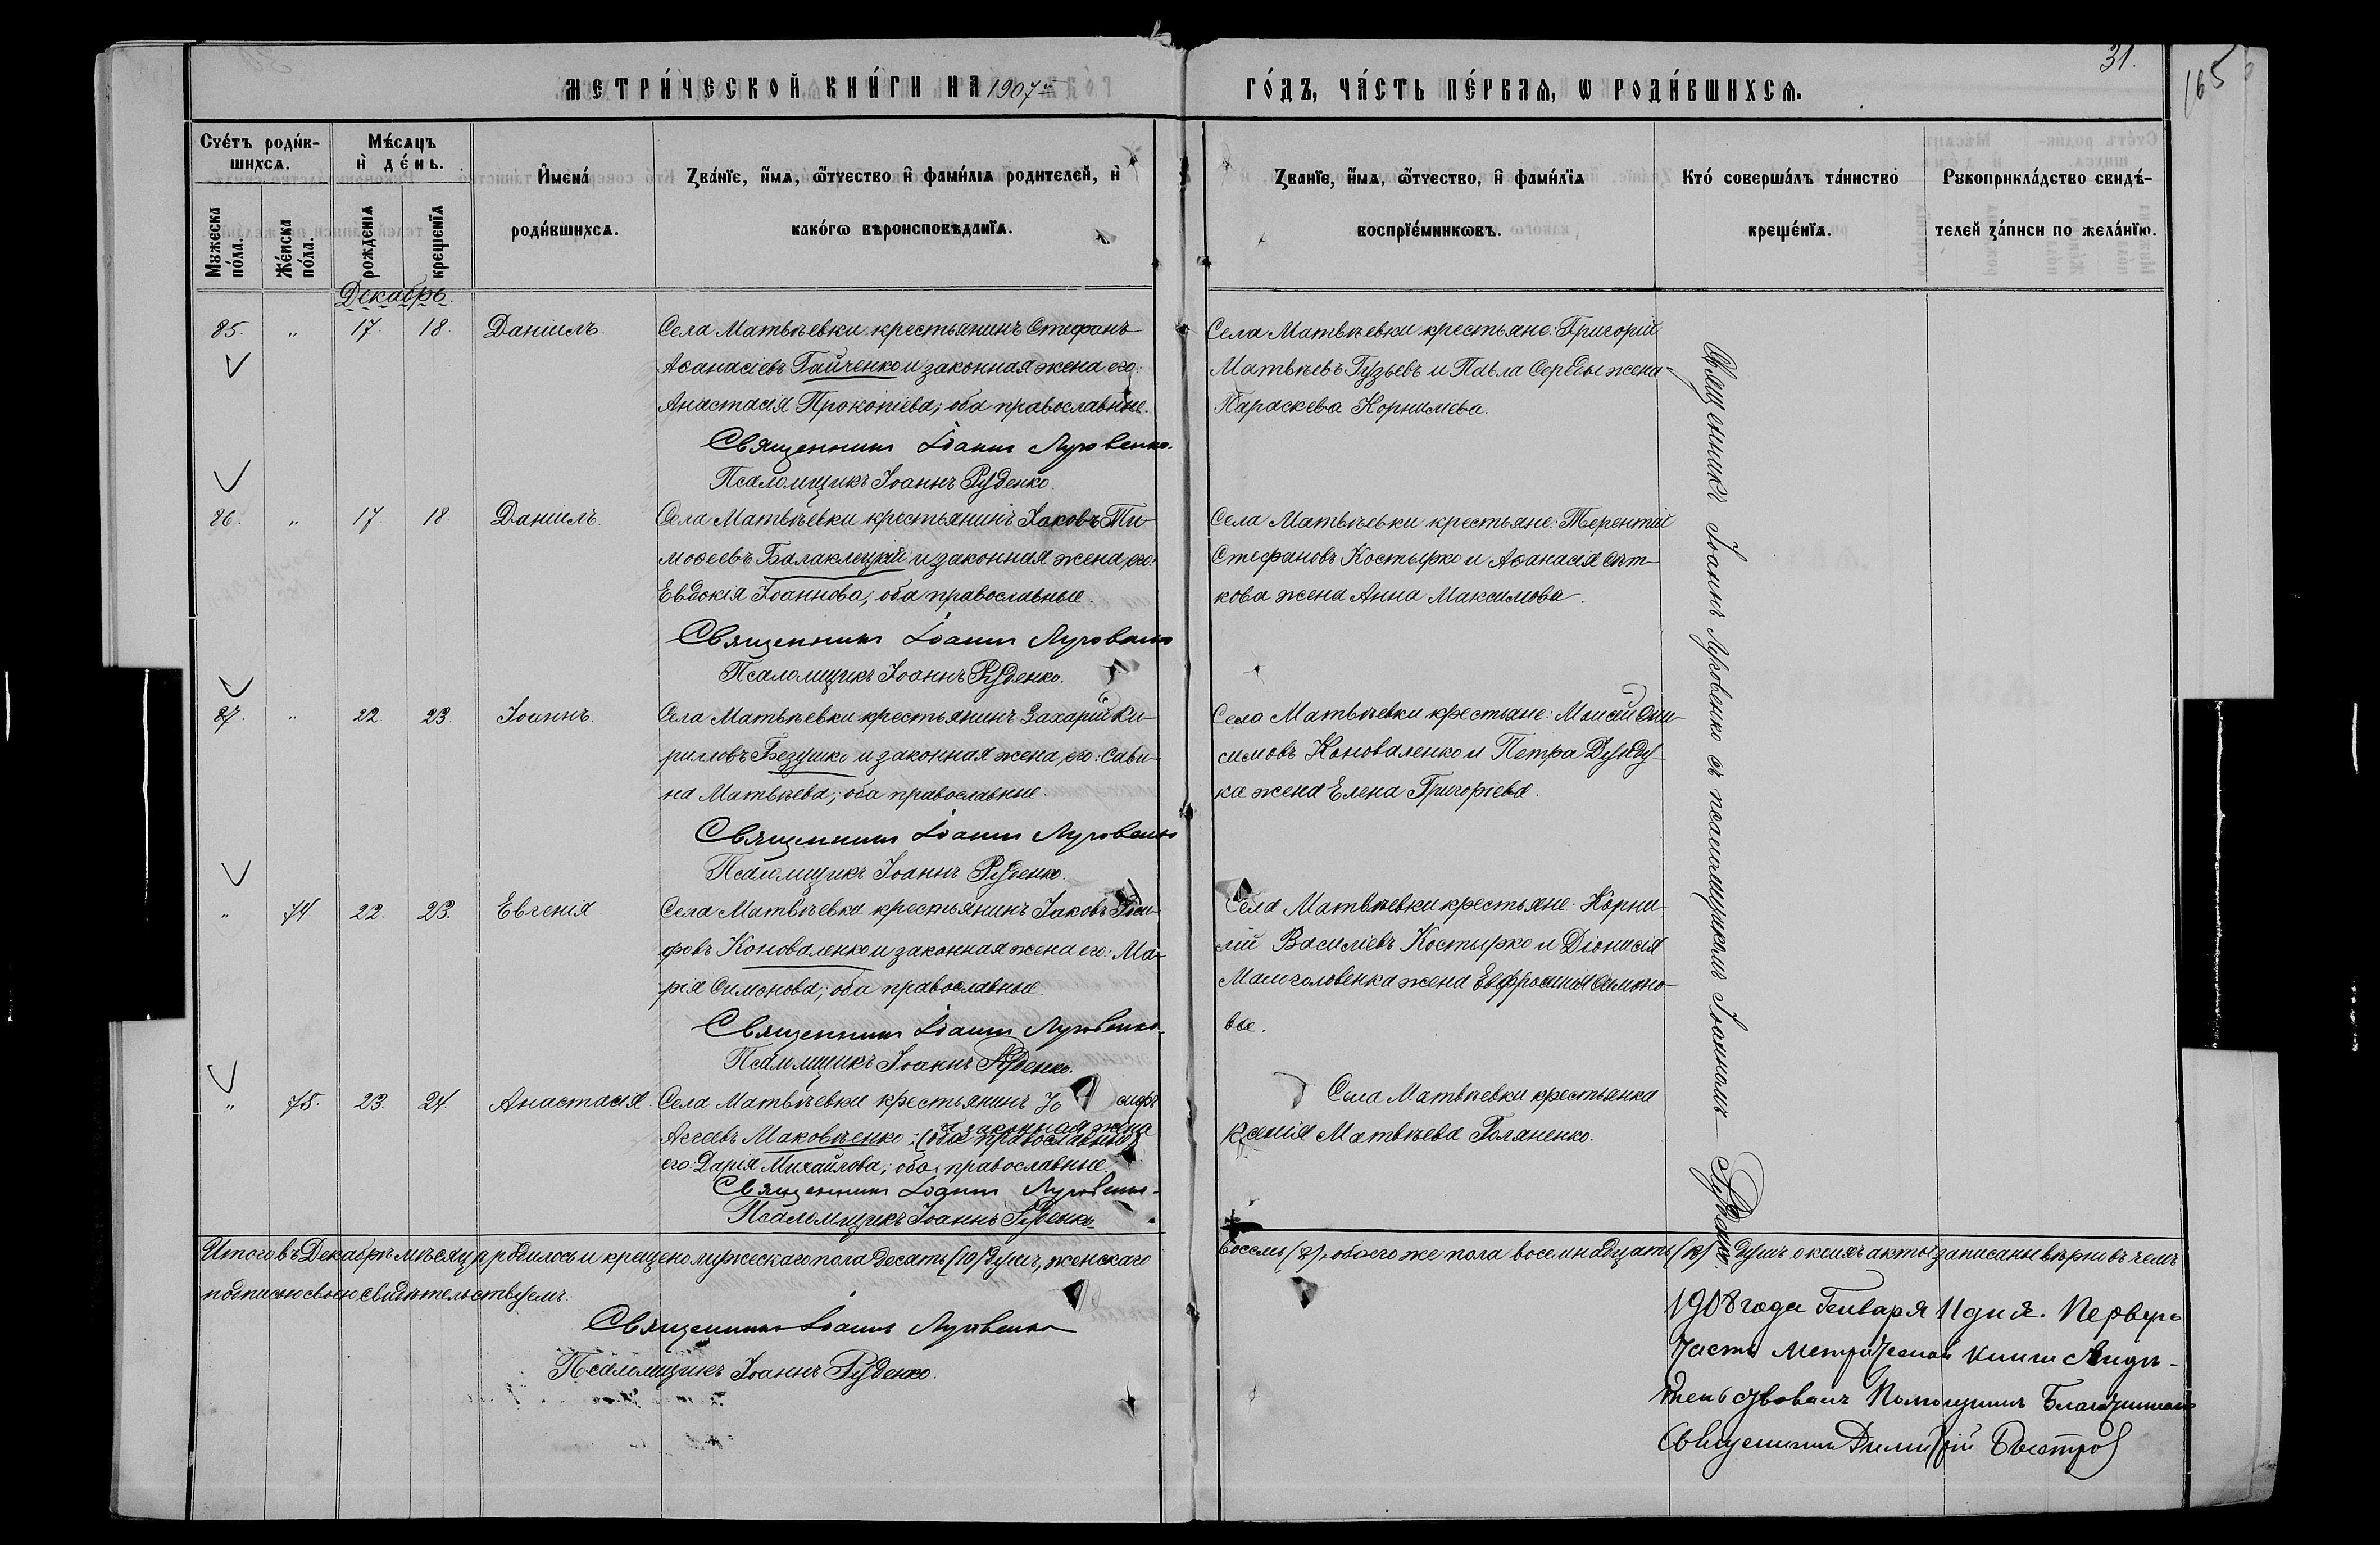 31.
165
МЕТРИ́ЧЕСКОЙ КНИ́ГИ НА 1907й
ГО́ДЪ, ЧА́СТЬ ПЕ́РВАѦ, Ѡ РОДИ́ВШИХСѦ.
Сче́тъ роди́в-
шихсѧ.
Мꙋжеска
по́ла.
Же́нска
по́ла.
Мѣ́сѧцъ
и҆ де́нь.
рожденїѧ
крещенїѧ
И҆мена́
роди́вшихсѧ.
Зва́нїе, и҆́мѧ, ѻ҆́тчество и҆ фами́лїѧ родителей, и҆
како́гѡ вѣроисповѣданїѧ.
Званїе, и҆́мѧ, ѻ҆́тчество, и҆ фами́лїѧ
воспрїе́мникѡвъ.
Кто́ соверша́лъ та́инство
креще́нїѧ.
Рꙋкоприкла́дство свидѣ́-
телей за́писи по жела́нїю.
Декабрь.
85. " 17. 18. Даніилъ.
Села Матвѣевки крестьянинъ Стефанъ
Аѳанасіевъ Гайченко и законная жена его:
Анастасія Прокопіева; оба православные.
Священникъ Іоаннъ Луговенко.
Псаломщикъ Іоаннъ Руденко.
Села Матвѣевки крестьяне: Григорій
Матвѣевъ Гузьевъ и Павла Середы жена
Параскева Корниліева.
86. " 17. 18. Даниилъ.
Села Матвѣевки крестьянинъ Іаковъ Ти-
моѳеевъ Балаклицкій и законная жена его:
Евдокія Іоаннова; оба православные.
Священникъ Іоаннъ Луговенко
Псаломщикъ Іоаннъ Руденко.
Села Матвѣевки крестьяне: Терентій
Стефановъ Костырко и Аѳанасія
кова жена Анна Максимова.
87. " 22. 23. Іоаннъ.
Села Матвѣевки крестьянинъ Захарій Ки-
рилловъ Безушко и законная жена его: Сави-
на Матвѣева; оба православные.
Священникъ Іоаннъ Луговенко
Псаломщикъ Іоаннъ Руденко.
Села Матвѣевки крестьяне: Моисей Они-
симовъ Коноваленко и Петра Дунду-
ка жена Елена Григоріева.
" 74. 22. 23. Евгенія
Села Матвѣевки крестьянинъ Іаковъ Іоси-
фовъ Коноваленко и законная жена его: Ма-
рія Симонова; оба православные.
Священникъ Іоаннъ Луговенко.
Псаломщикъ Іоаннъ Руденко.
Села Матвѣевки крестьяне: Корни-
лій Василіевъ Костырко и Діонисія
Малоголовенка жена Евфросинія Симоно-
ва.
" 75. 23. 24. Анастасія.
Села Матвѣевки крестьянинъ Іо сифъ
и законная жена
Маковѣенко; (оба православные)
его: Дарія Михайлова; оба православные.
Священникъ Іоаннъ Луговенко
Псаломщикъ Іоаннъ Руденко
Села Матвѣевки крестьянка
Ксенія Матвѣева Голяненко.
Священникъ Іоаннъ Луговенко съ псаломщикомъ Іоанномъ Руденко.
Итого въ Декабрѣ мѣсяцѣ родилось и крещено мужескаго пола десять (10) душъ, женскаго
восемь (8), обоего же пола восемнадцать (18) душъ о коихъ акты записаны вѣрно въ чемъ
подписью своею свидѣтельствуемъ:
Священникъ Іоаннъ Луговенко
Псаломщикъ Іоаннъ Руденко.
1908 года Генваря 11 дня. Первую
часть метрической книги свидѣ-
тельствовалъ Помощникъ Благочиннаго
Священникъ Димитрій Быстровъ